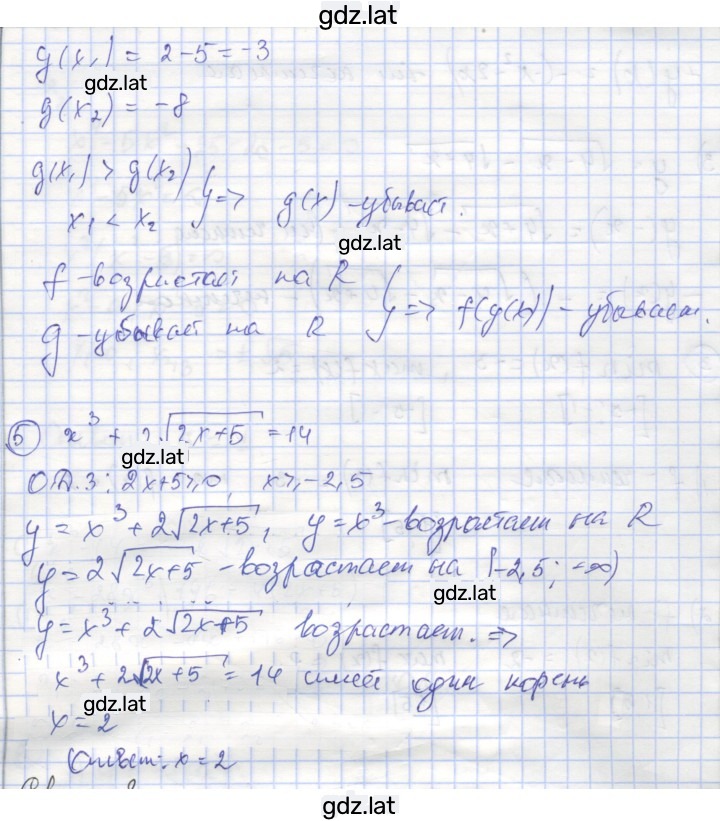 gdz.lat
g(x₁) = 2-5 = -3
gdz.lat
g(x₂) = -8
g(x₁) > g(x₂)
x₁ < x₂ } => g(x) - убывает.
gdz.lat
f - возрастает на R
g - убывает на R } => f(g(x)) - убывает.
5 x³ + 2√2x+5 = 14
gdz.lat
О.Д.З: 2x+5⩾0, x⩾-2,5
y = x³ + 2√2x+5, y = x³ - возрастает на R
y = 2√2x+5 - возрастает на [-2,5; +∞)
gdz.lat
y = x³ + 2√2x+5 возрастает. =>
x³ + 2√2x+5 = 14 имеет один корень
gdz.lat
x = 2
Ответ: x = 2
gdz.lat